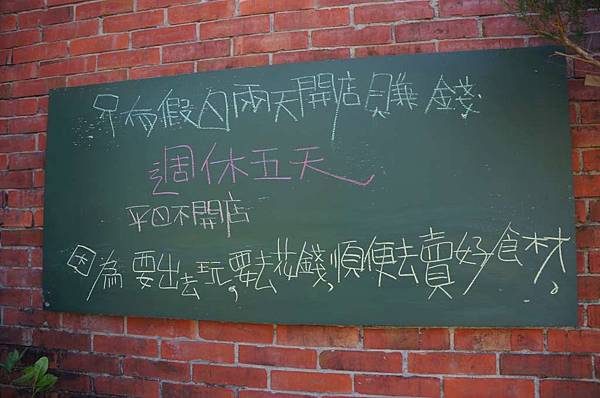 只有假日兩天開店賺錢
週休五天
平日不開店
因為要出去玩,要去花錢,順便去賣好食材。